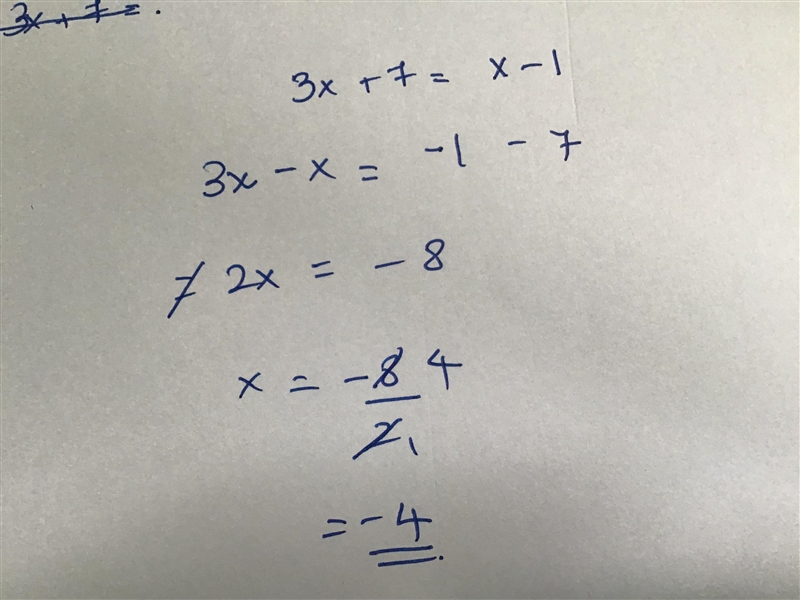 3x + 7 = .
3x + 7 = x - 1
3x - x = -1 - 7
= 2x = - 8
x = -8 4
2 1
= -4